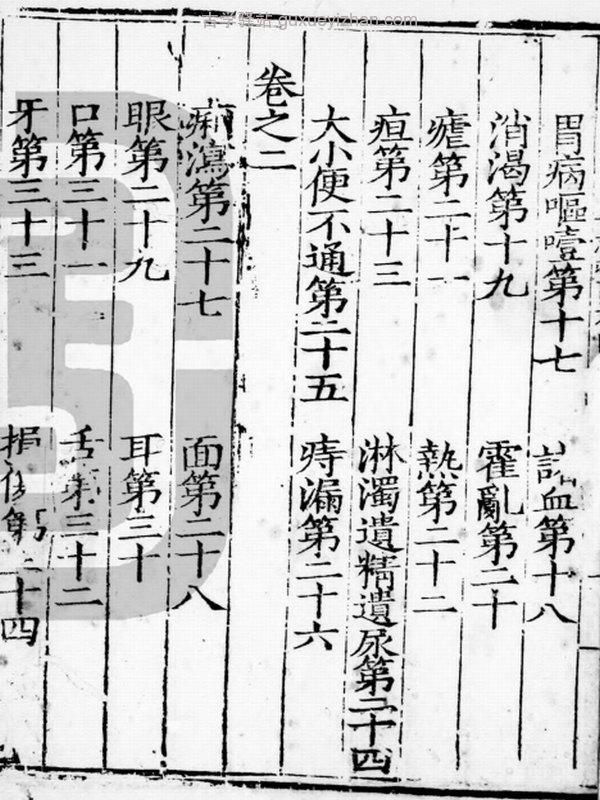 古学驿站 guxueyizhan.com
胃病嘔噎第十七 諸血第十八
消渴第十九 霍亂第二十
瘧第二十一 熱第二十二
疸第二十三 淋濁遺精遺尿第二十四
大小便不通第二十五 痔漏第二十六
卷之二
痢瀉第二十七 面第二十八
眼第二十九 耳第三十
口第三十一 舌第三十二
牙第三十三 損傷第三十四